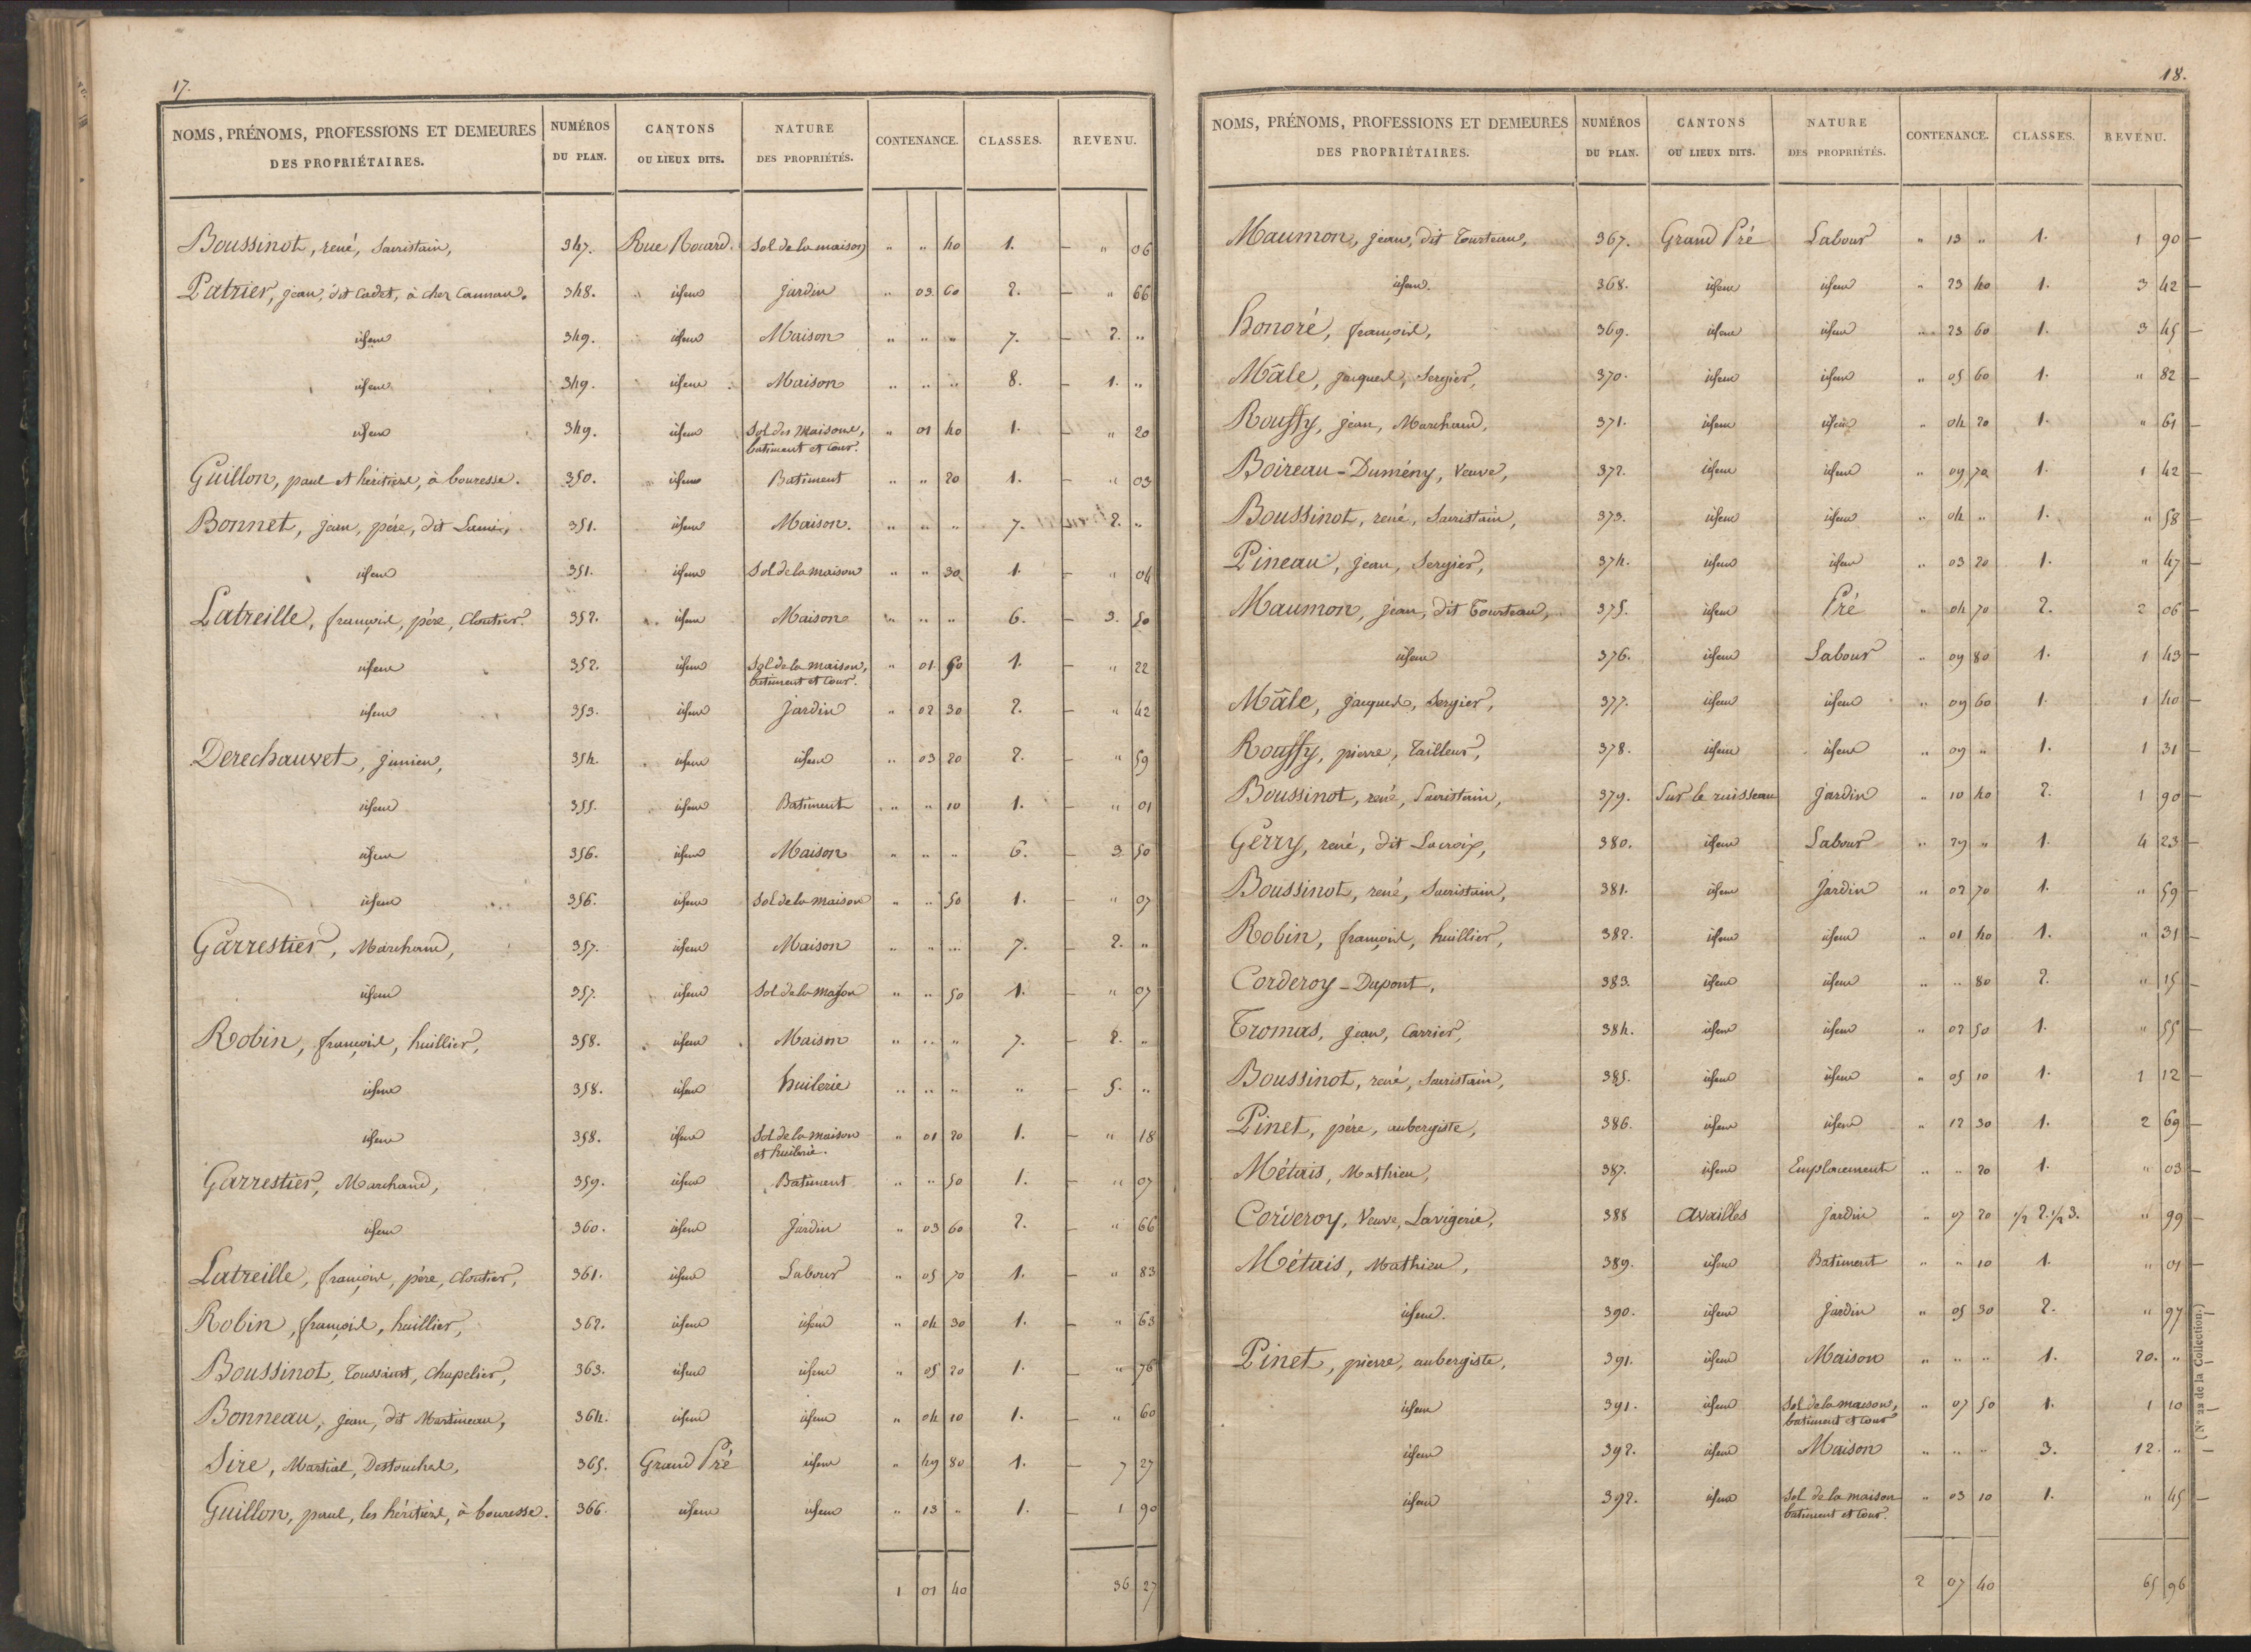 17.
NOMS, PRÉNOMS, PROFESSIONS ET DEMEURES DES PROPRIÉTAIRES. NUMÉROS DU PLAN. CANTONS OU LIEUX DITS. NATURE DES PROPRIÉTÉS. CONTENANCE. CLASSES. REVENU.
Boussinot, rené, Sacristain, 347. Rue Rouard. Sol de la maison " " 40 1. " 06
Patrier, jean, dit Cadet, à chez Cannau. 348. idem jardin " 03 60 2. " 66
idem 349. idem Maison " " " 7. 2. "
idem 349. idem Maison " " " 8. 1. "
idem 349. idem Sol des Maisons, batiment et Cour. " 01 40 1. " 20
Guillon, paul et héritiers, à bouresse. 350. idem Batiment " " 20 1. " 03
Bonnet, jean, père, dit Lami, 351. idem Maison. " " " 7. 2. "
idem 351. idem Sol de la maison " " 30 1. " 04
Latreille, françois, père, Cloutier. 352. idem Maison " " " 6. 3. 50
idem 352. idem Sol de la maison, batiment et Cour. " 01 60 1. " 22
idem 353. idem jardin " 02 30 2. " 42
Derechauvet, junien, 354. idem idem " 03 20 2. " 59
idem 355. idem Batiment " " 10 1. " 01
idem 356. idem Maison " " " 6. 3. 50
idem 356. idem Sol de la maison " " 50 1. " 07
Garrestier, Marchand, 357. idem Maison " " " 7. 2. "
idem 357. idem Sol de la maison " " 50 1. " 07
Robin, françois, huillier, 358. idem Maison " " " 7. 2. "
idem 358. idem huilerie " " " " 5. "
idem 358. idem Sol de la maison et huilerie. " 01 20 1. " 18
Garrestier, Marchand, 359. idem Batiment " " 50 1. " 07
idem 360. idem jardin " 03 60 2. " 66
Latreille, françois, père, Cloutier, 361. idem Labour " 05 70 1. " 83
Robin, françois, huillier, 362. idem idem " 04 30 1. " 63
Boussinot, Toussaint, Chapelier, 363. idem idem " 05 20 1. " 76
Bonneau, jean, dit Martineau, 364. idem idem " 04 10 1. " 60
Sire, Martial, Destouches, 365. Grand Pré idem " 49 80 1. 7 27
Guillon, paul, les héritiers, à bouresse. 366. idem idem " 13 " 1. 1 90
1 01 40 36 27
18.
NOMS, PRÉNOMS, PROFESSIONS ET DEMEURES DES PROPRIÉTAIRES. NUMÉROS DU PLAN. CANTONS OU LIEUX DITS. NATURE DES PROPRIÉTÉS. CONTENANCE. CLASSES. REVENU.
Maumon, jean, dit Tourteau, 367. Grand Pré Labour " 13 " 1. 1 90
idem. 368. idem idem " 23 40 1. 3 42
honoré, françois, 369. idem idem " 23 60 1. 3 45
Mâle, jacques, Sergier, 370. idem idem " 05 60 1. " 82
Rouffy, jean, Marchand, 371. idem idem " 04 20 1. " 61
Boireau-Dumény, Veuve, 372. idem idem " 09 70 1. 1 42
Boussinot, rené, Sacristain, 373. idem idem " 04 " 1. " 58
Pineau, jean, Sergier, 374. idem idem " 03 20 1. " 47
Maumon, jean, dit Tourteau, 375. idem Pré " 04 70 2. 2 06
idem 376. idem Labour " 09 80 1. 1 43
Mâle, jacques, Sergier, 377. idem idem " 09 60 1. 1 40
Rouffy, pierre, Tailleur, 378. idem idem " 09 " 1. 1 31
Boussinot, rené, Sacristain, 379. Sur le ruisseau jardin " 10 40 2. 1 90
Gerry, rené, dit Lacroix, 380. idem Labour " 29 " 1. 4 23
Boussinot, rené, Sacristain, 381. idem Jardin " 02 70 1. " 59
Robin, françois, huillier, 382. idem idem " 01 40 1. " 31
Corderoy-Dupont, 383. idem idem " " 80 2. " 15
Tromas, jean, Carrier, 384. idem idem " 02 50 1. " 55
Boussinot, rené, Sacristain, 385. idem idem " 05 10 1. 1 12
Pinet, père, aubergiste, 386. idem idem " 12 30 1. 2 69
Métais, Mathieu, 387. idem Emplacement " " 20 1. " 03
Corderoy, Veuve, Lavigerie, 388 availles jardin " 07 20 1/2 2. 1/2 3. " 99
Métais, Mathieu, 389. idem Batiment " " 10 1. " 01
idem. 390. idem jardin " 05 30 2. " 97
Pinet, pierre, aubergiste, 391. idem Maison " " " 1. 20. "
idem 391. idem Sol de la maison, batiment et Cour " 07 50 1. 1 10
idem 392. idem Maison " " " 3. 12. "
idem 392. idem Sol de la maison batiment et Cour. " 03 10 1. " 45
2 07 40 65 96
(N° 23 de la Collection.)